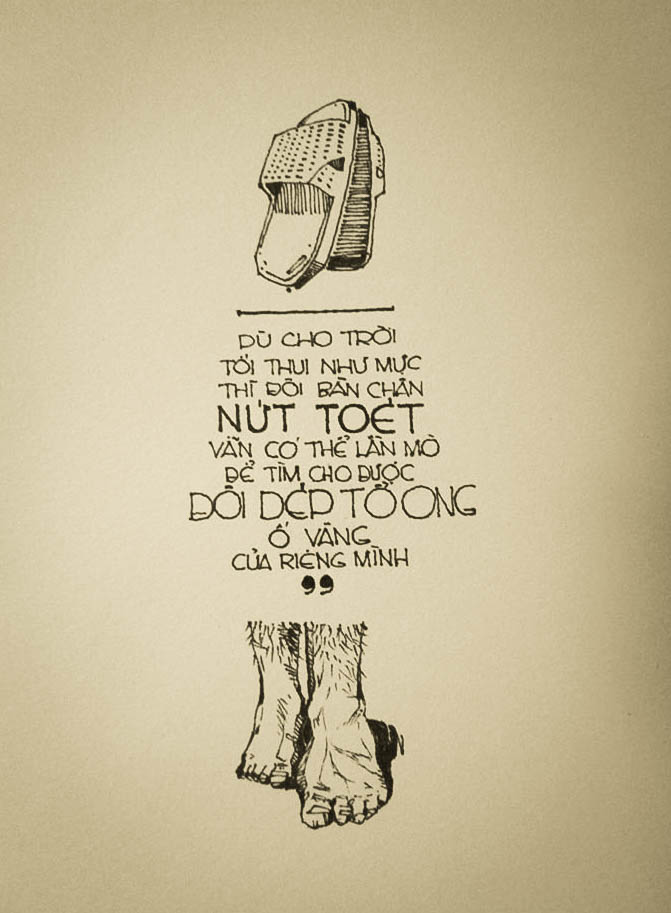 DÙ CHO TRỜI
TỐI THUI NHƯ MỰC
THÌ ĐÔI BÀN CHÂN
NỨT TOÉT
VẪN CÓ THỂ LẦN MÒ
ĐỂ TÌM CHO ĐƯỢC
ĐÔI DÉP TỔ ONG
Ố VÀNG
CỦA RIÊNG MÌNH
”